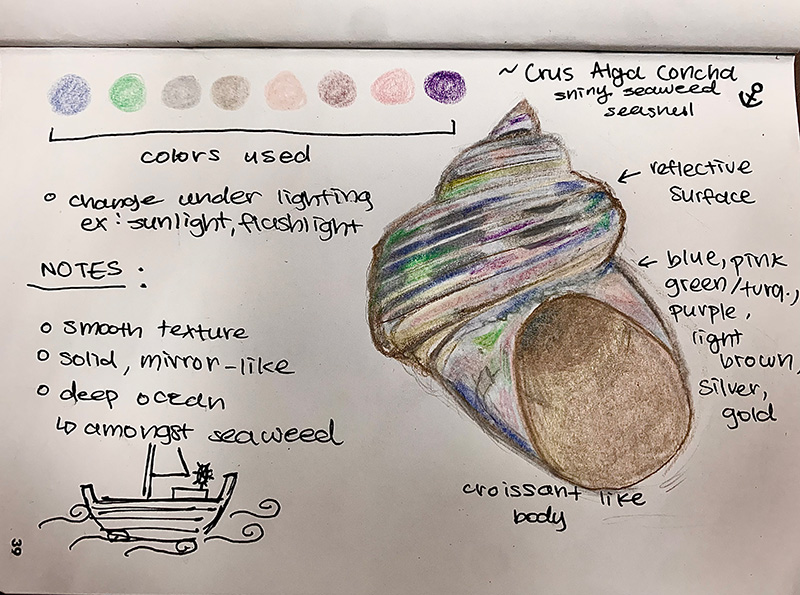 ~ Crus Alga Concha
shiny seaweed
seashell
colors used
change under lighting
ex: sunlight, flashlight
NOTES:
smooth texture
solid, mirror-like
deep ocean
↳ amongst seaweed
← reflective
surface
← blue, pink
green/turq.,
purple,
light
brown,
silver,
gold
croissant like
body
39